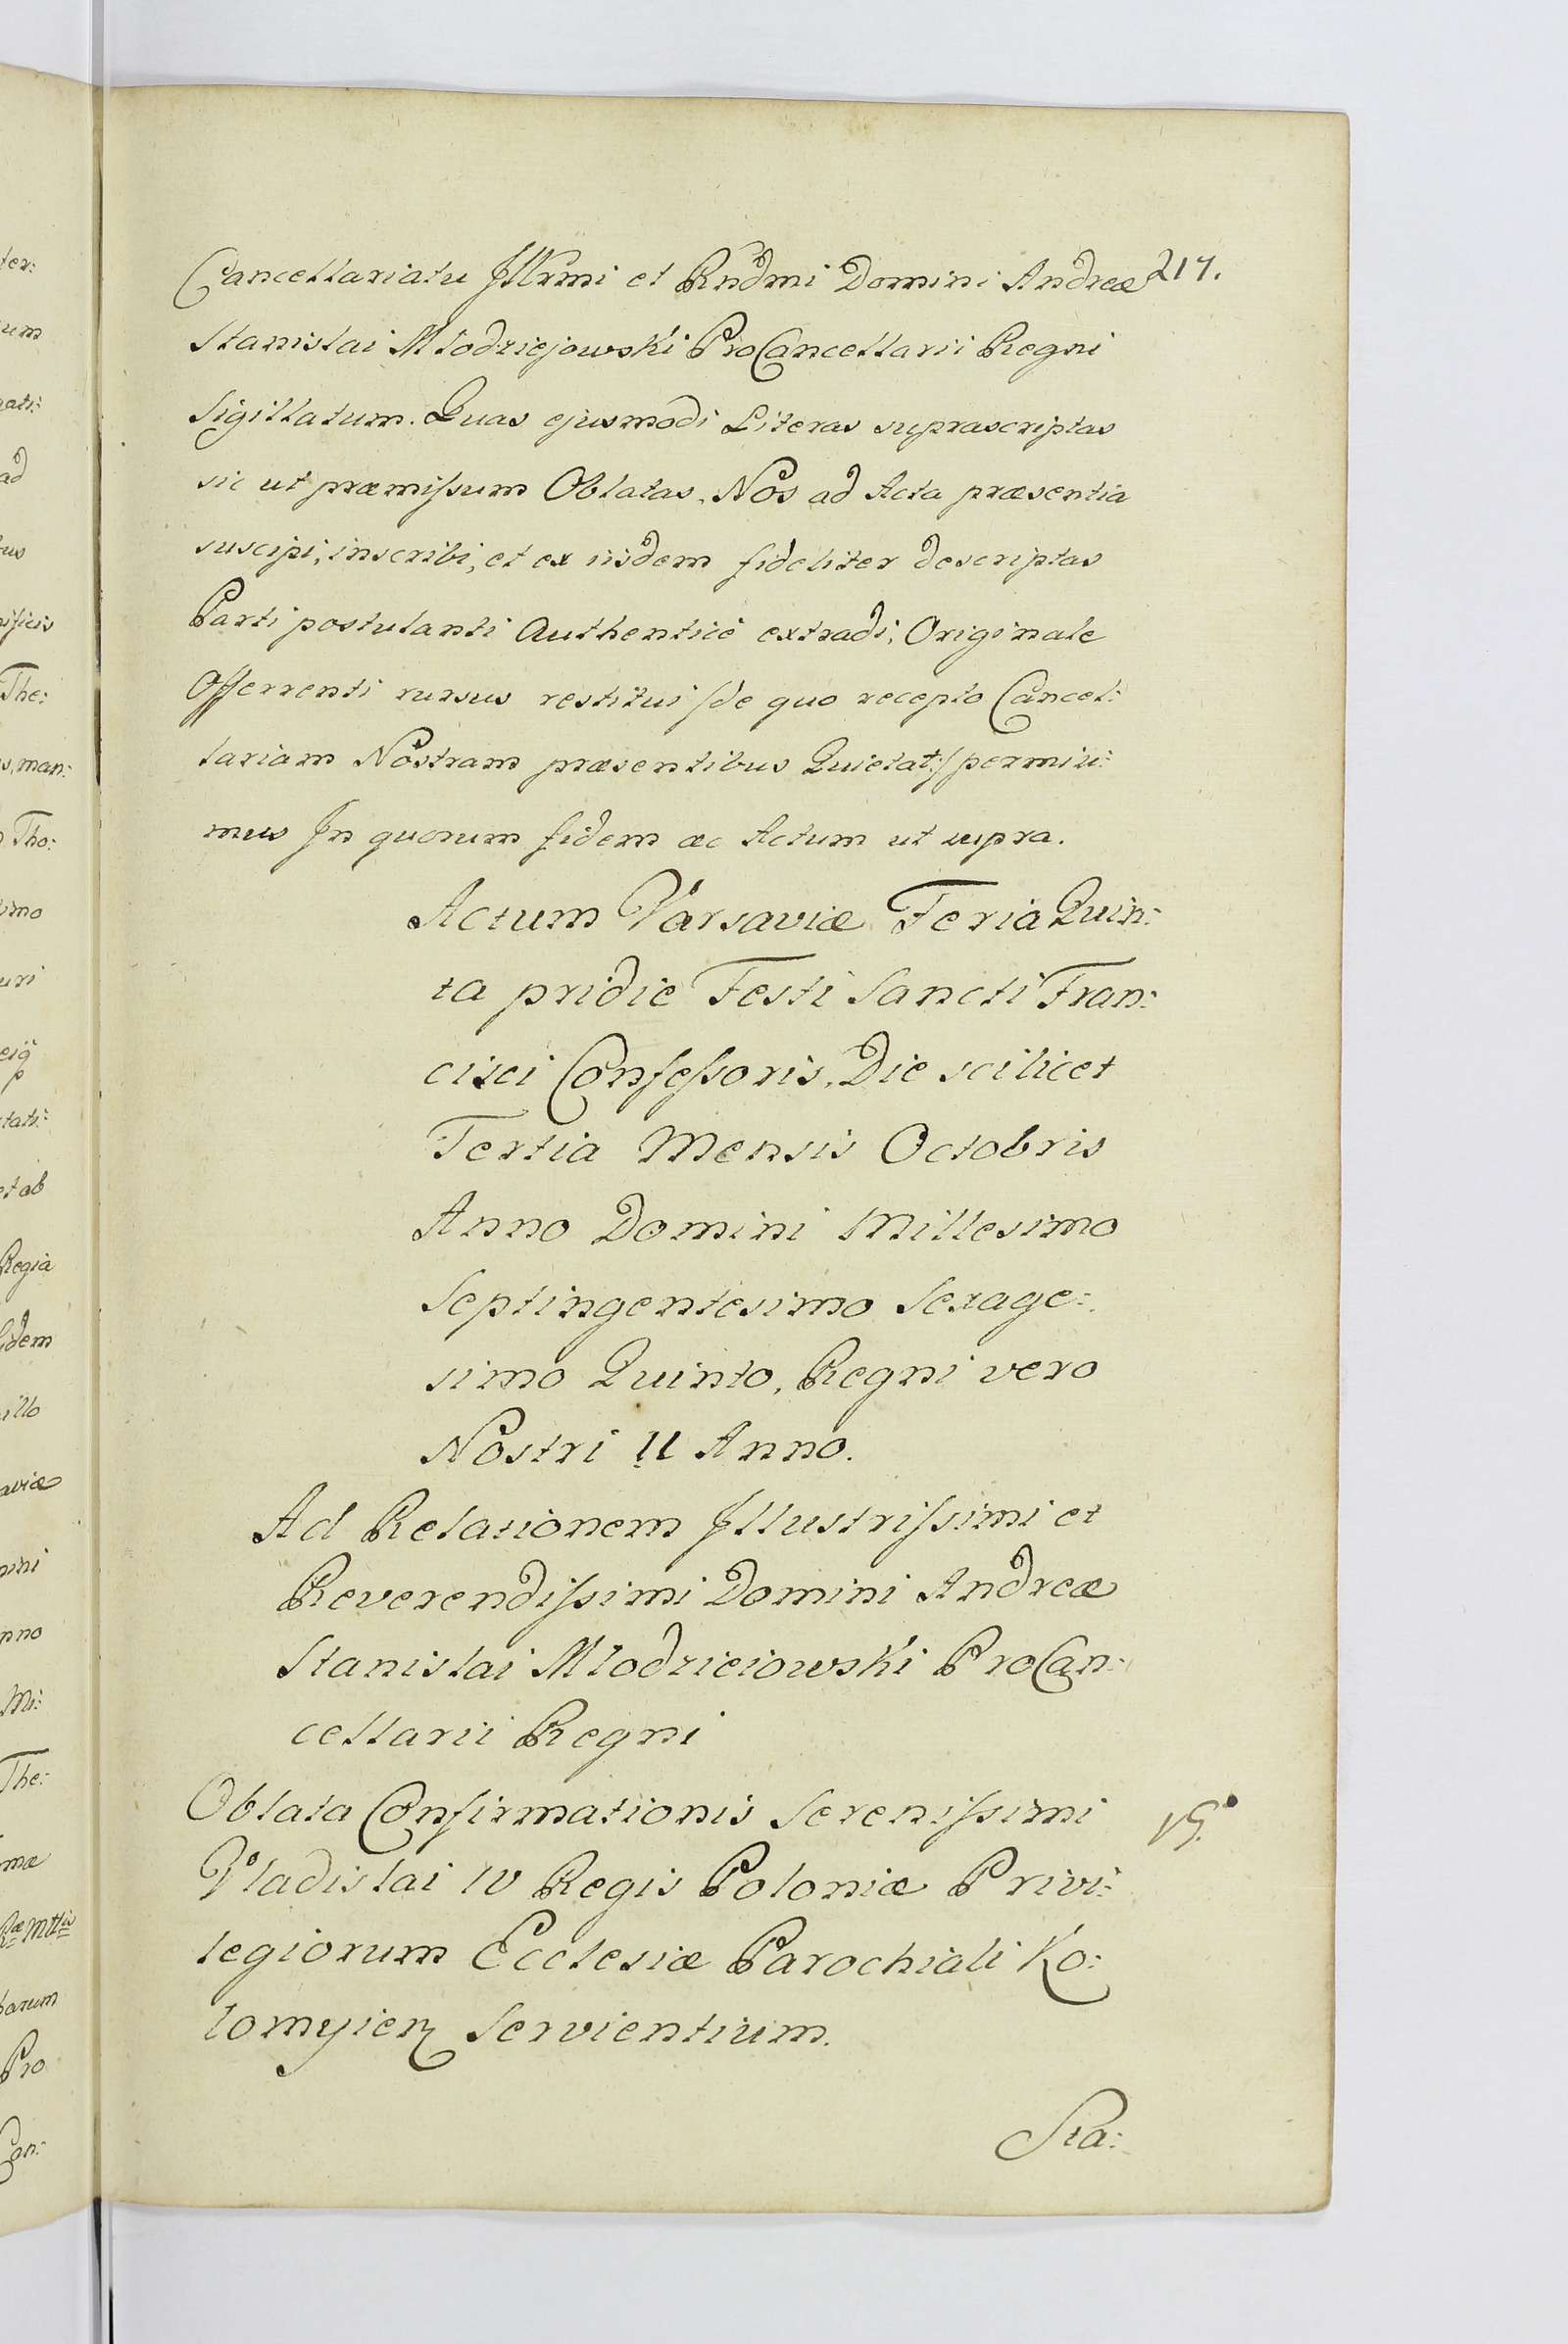 Cancellariatu Jllrmi et Rndmi Domini Andreæ 217.
Stanislai Młodziejowski ProCancellarii Regni
Sigillatum. Quas ejusmodi Literas suprascriptas
sic ut præmissum Oblatas, Nos ad Acta præsentia
suscipi, inscribi, et ex iisdem fideliter descriptas
Parti postulanti Authenticè extradi, Originale
Offerrenti rursus restitui /de quo recepto Cancel:
lariam Nostram præsentibus Quietat:/ permisi:
mus Jn quorum fidem ac Actum ut supra.
Actum Varsaviæ Feria Quin:
ta pridie Festi Sancti Fran:
cisci Confessoris, Die scilicet
Tertia Mensis Octobris
Anno Domini Millesimo
Septingentesimo Sexage:
simo Quinto, Regni vero
Nostri II Anno.
Ad Relationem Jllustrissimi et
Reverendissimi Domini Andreæ
Stanislai Młodzieiowski ProCan:
cellarii Regni
Oblata Confirmationis Serenissimi
Vladislai IV Regis Poloniæ Privi:
legiorum Ecclesiæ Parochiali Ko:
lomyien Servientium.
Sta:
ter:
um
ati:
ad
bus
ificis
The:
s, man:
Tho:
imo
uri
tati:
et ab
Regia
fidem
illo
aviæ
mini
nno
Mi:
The:
mæ
barum
Pro
Can: